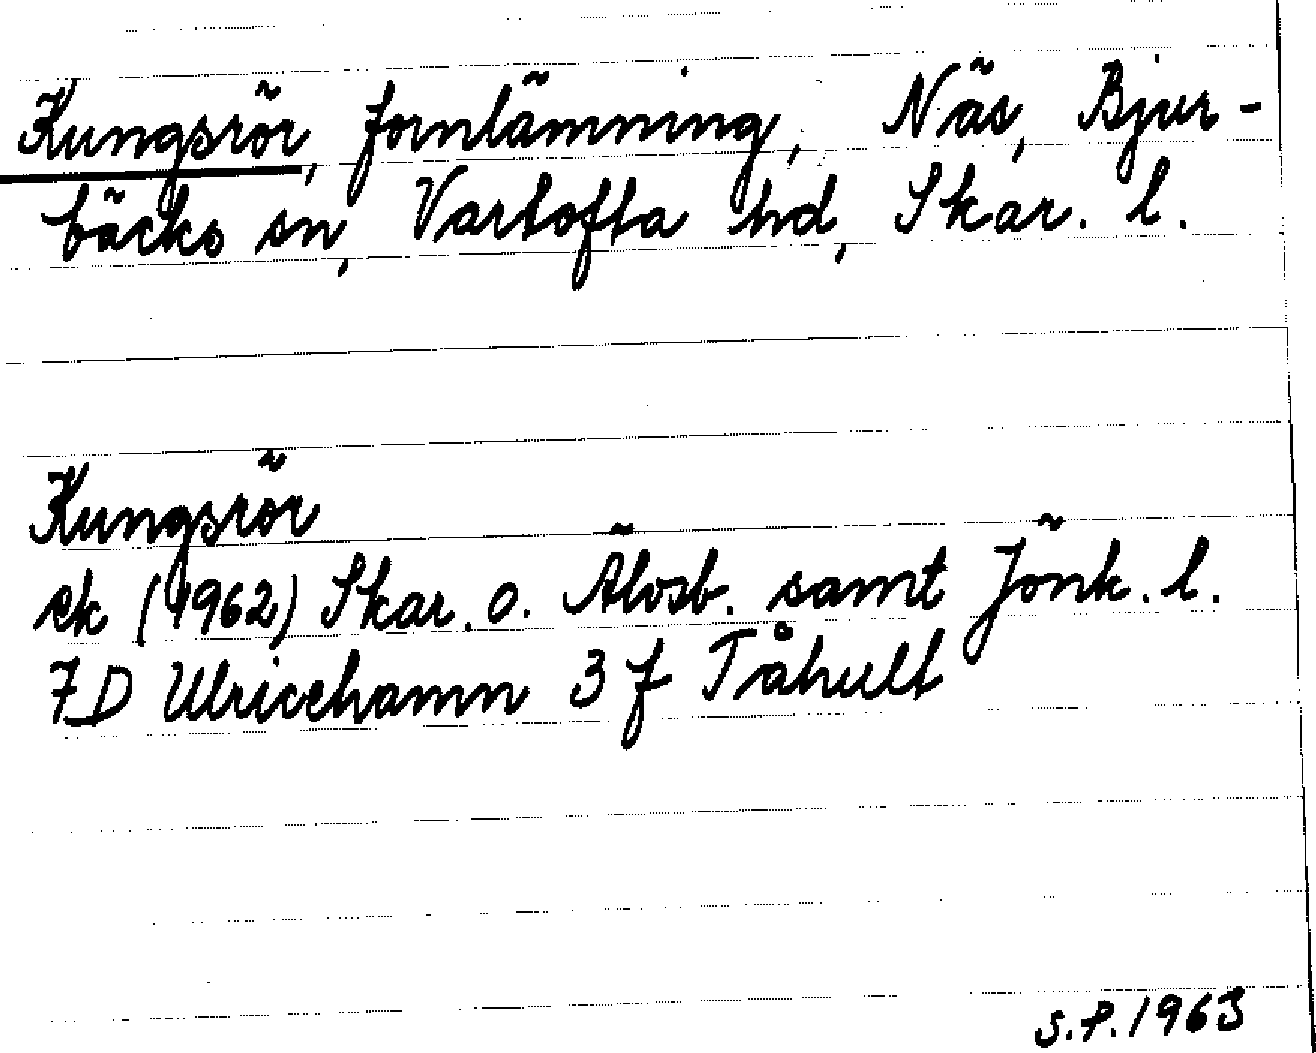 Kungsrör, fornlämning, Näs, Bjur-
bäcks sn, Vartofta hd, Skar. l.
Kungsrör
ek (1962) Skar. o. Älvsb. samt Jönk. l.
7D Ulricehamn 3 f Tåhult
S.P. 1963